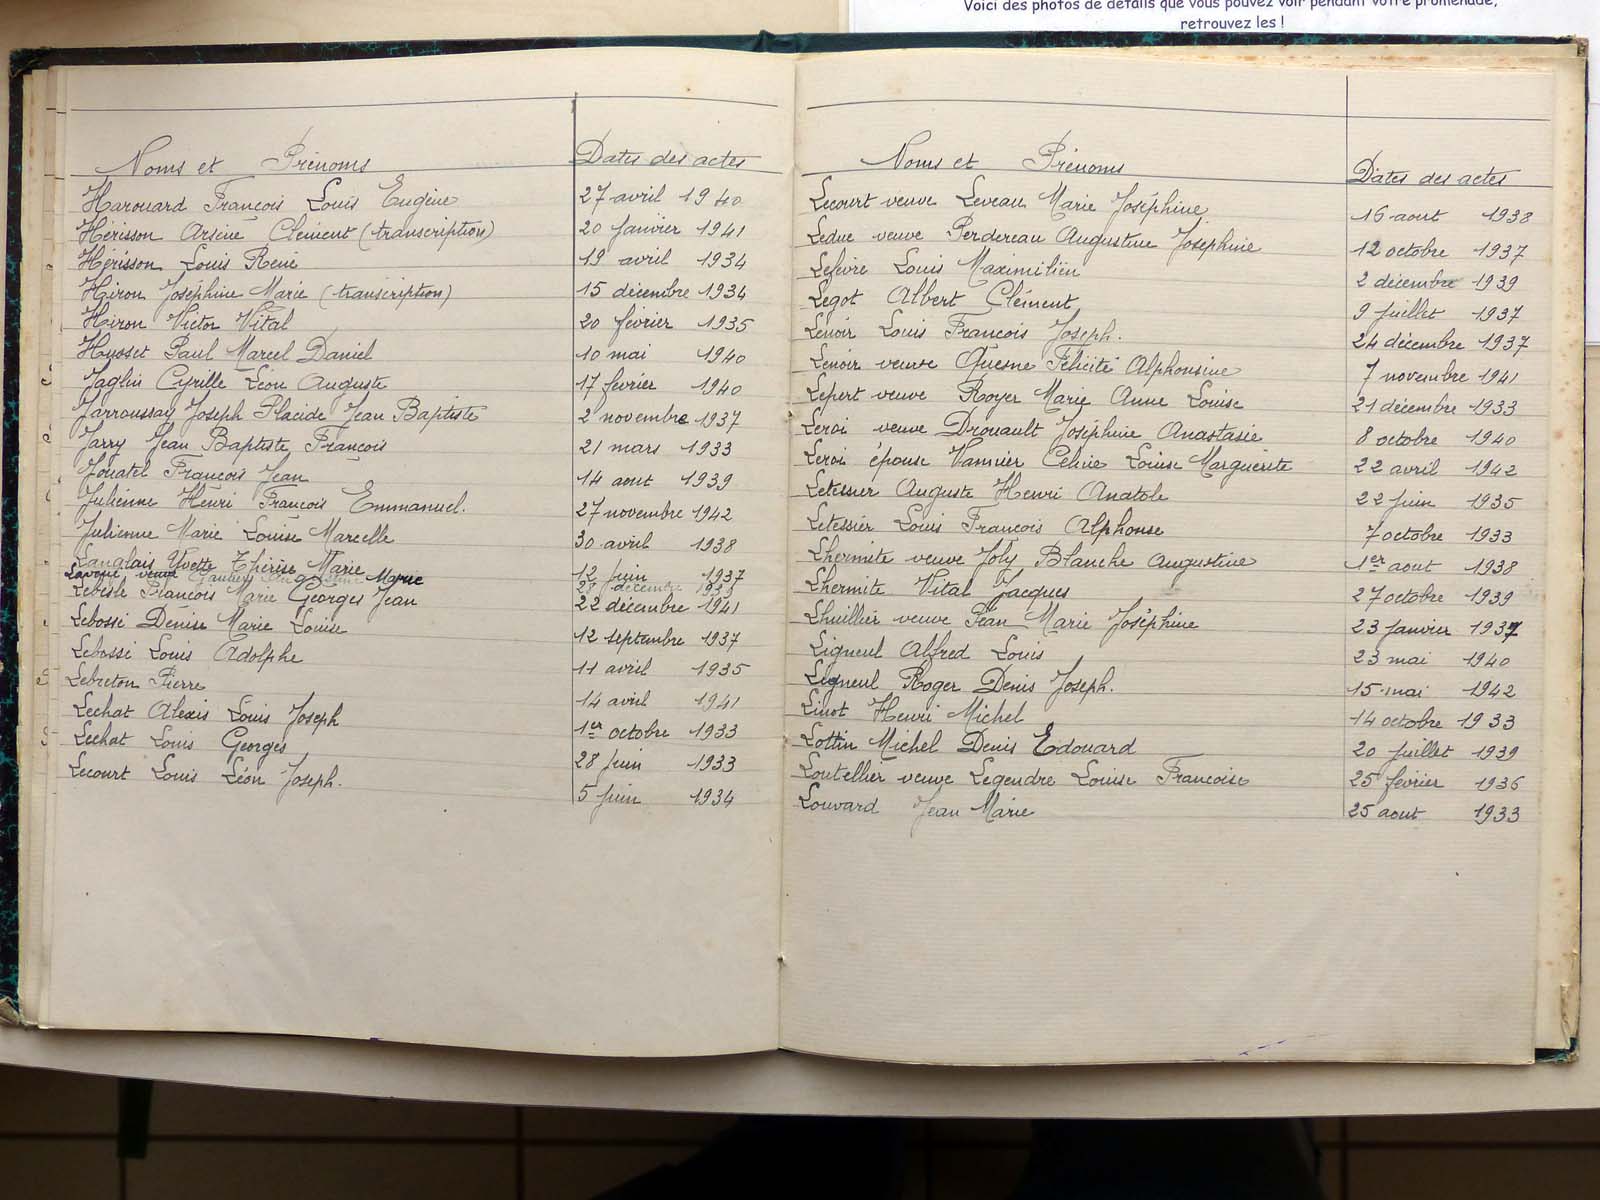 Voici des photos de détails que vous pouvez voir pendant votre promenade,
retrouvez les !
Noms et Prénoms Dates des actes
Harouard François Louis Eugène 27 avril 1940
Hérisson Arsène Clément (transcription) 20 janvier 1941
Hérisson Louis René 19 avril 1934
Hiron Joséphine Marie (transcription) 15 décembre 1934
Hiron Victor Vital 20 février 1935
Huoset Paul Marcel Daniel 10 mai 1940
Jaglin Cyrille Léon Auguste 17 fevrier 1940
Jarroussay Joseph Placide Jean Baptiste 2 novembre 1937
Jarry Jean Baptiste François 21 mars 1933
Jouatel François Jean 14 aout 1939
Julienne Henri François Emmanuel. 27 novembre 1942
Julienne Marie Louise Marcelle 30 avril 1938
Langlais Yvette Thérèse Marie 12 juin 1937
veuve Marie 28 décembre
Lebesle François Marie Georges Jean 22 décembre 1941
Lebossé Denise Marie Louise 12 septembre 1937
Lebossé Louis Adolphe 11 avril 1935
Lebreton Pierre 14 avril 1941
Lechat Alexis Louis Joseph 1er octobre 1933
Lechat Louis Georges 28 juin 1933
Lecourt Louis Léon Joseph. 5 juin 1934
Noms et Prénoms Dates des actes
Lecourt veuve Leveau Marie Joséphine 16 aout 1938
Leduc veuve Perdereau Augustine Josephine 12 octobre 1937
Lefèvre Louis Maximilien 2 décembre 1939
Legot Albert Clément 9 juillet 1937
Lenoir Louis François Joseph. 24 décembre 1937
Lenoir veuve Quesne Félicité Alphonsine 7 novembre 1941
Lepert veuve Royer Marie Anne Louise 21 décembre 1933
Leroi veuve Drouault Joséphine Anastasie 8 octobre 1940
Leroi épouse Vannier Celine Louise Marguerite 22 avril 1942
Letessier Auguste Henri Anatole 22 juin 1935
Letessier Louis François Alphonse 7 octobre 1933
Lhermite veuve Joly Blanche Augustine 1er aout 1938
Lhermite Vital Jacques 27 octobre 1939
Lhuillier veuve Péan Marie Joséphine 23 janvier 1937
Ligneul Alfred Louis 23 mai 1940
Ligneul Roger Denis Joseph. 15 mai 1942
Linot Henri Michel 14 octobre 1933
Lottin Michel Denis Edouard 20 juillet 1939
Loutellier veuve Legendre Louise Francoise 25 février 1936
Louvard Jean Marie 25 aout 1933